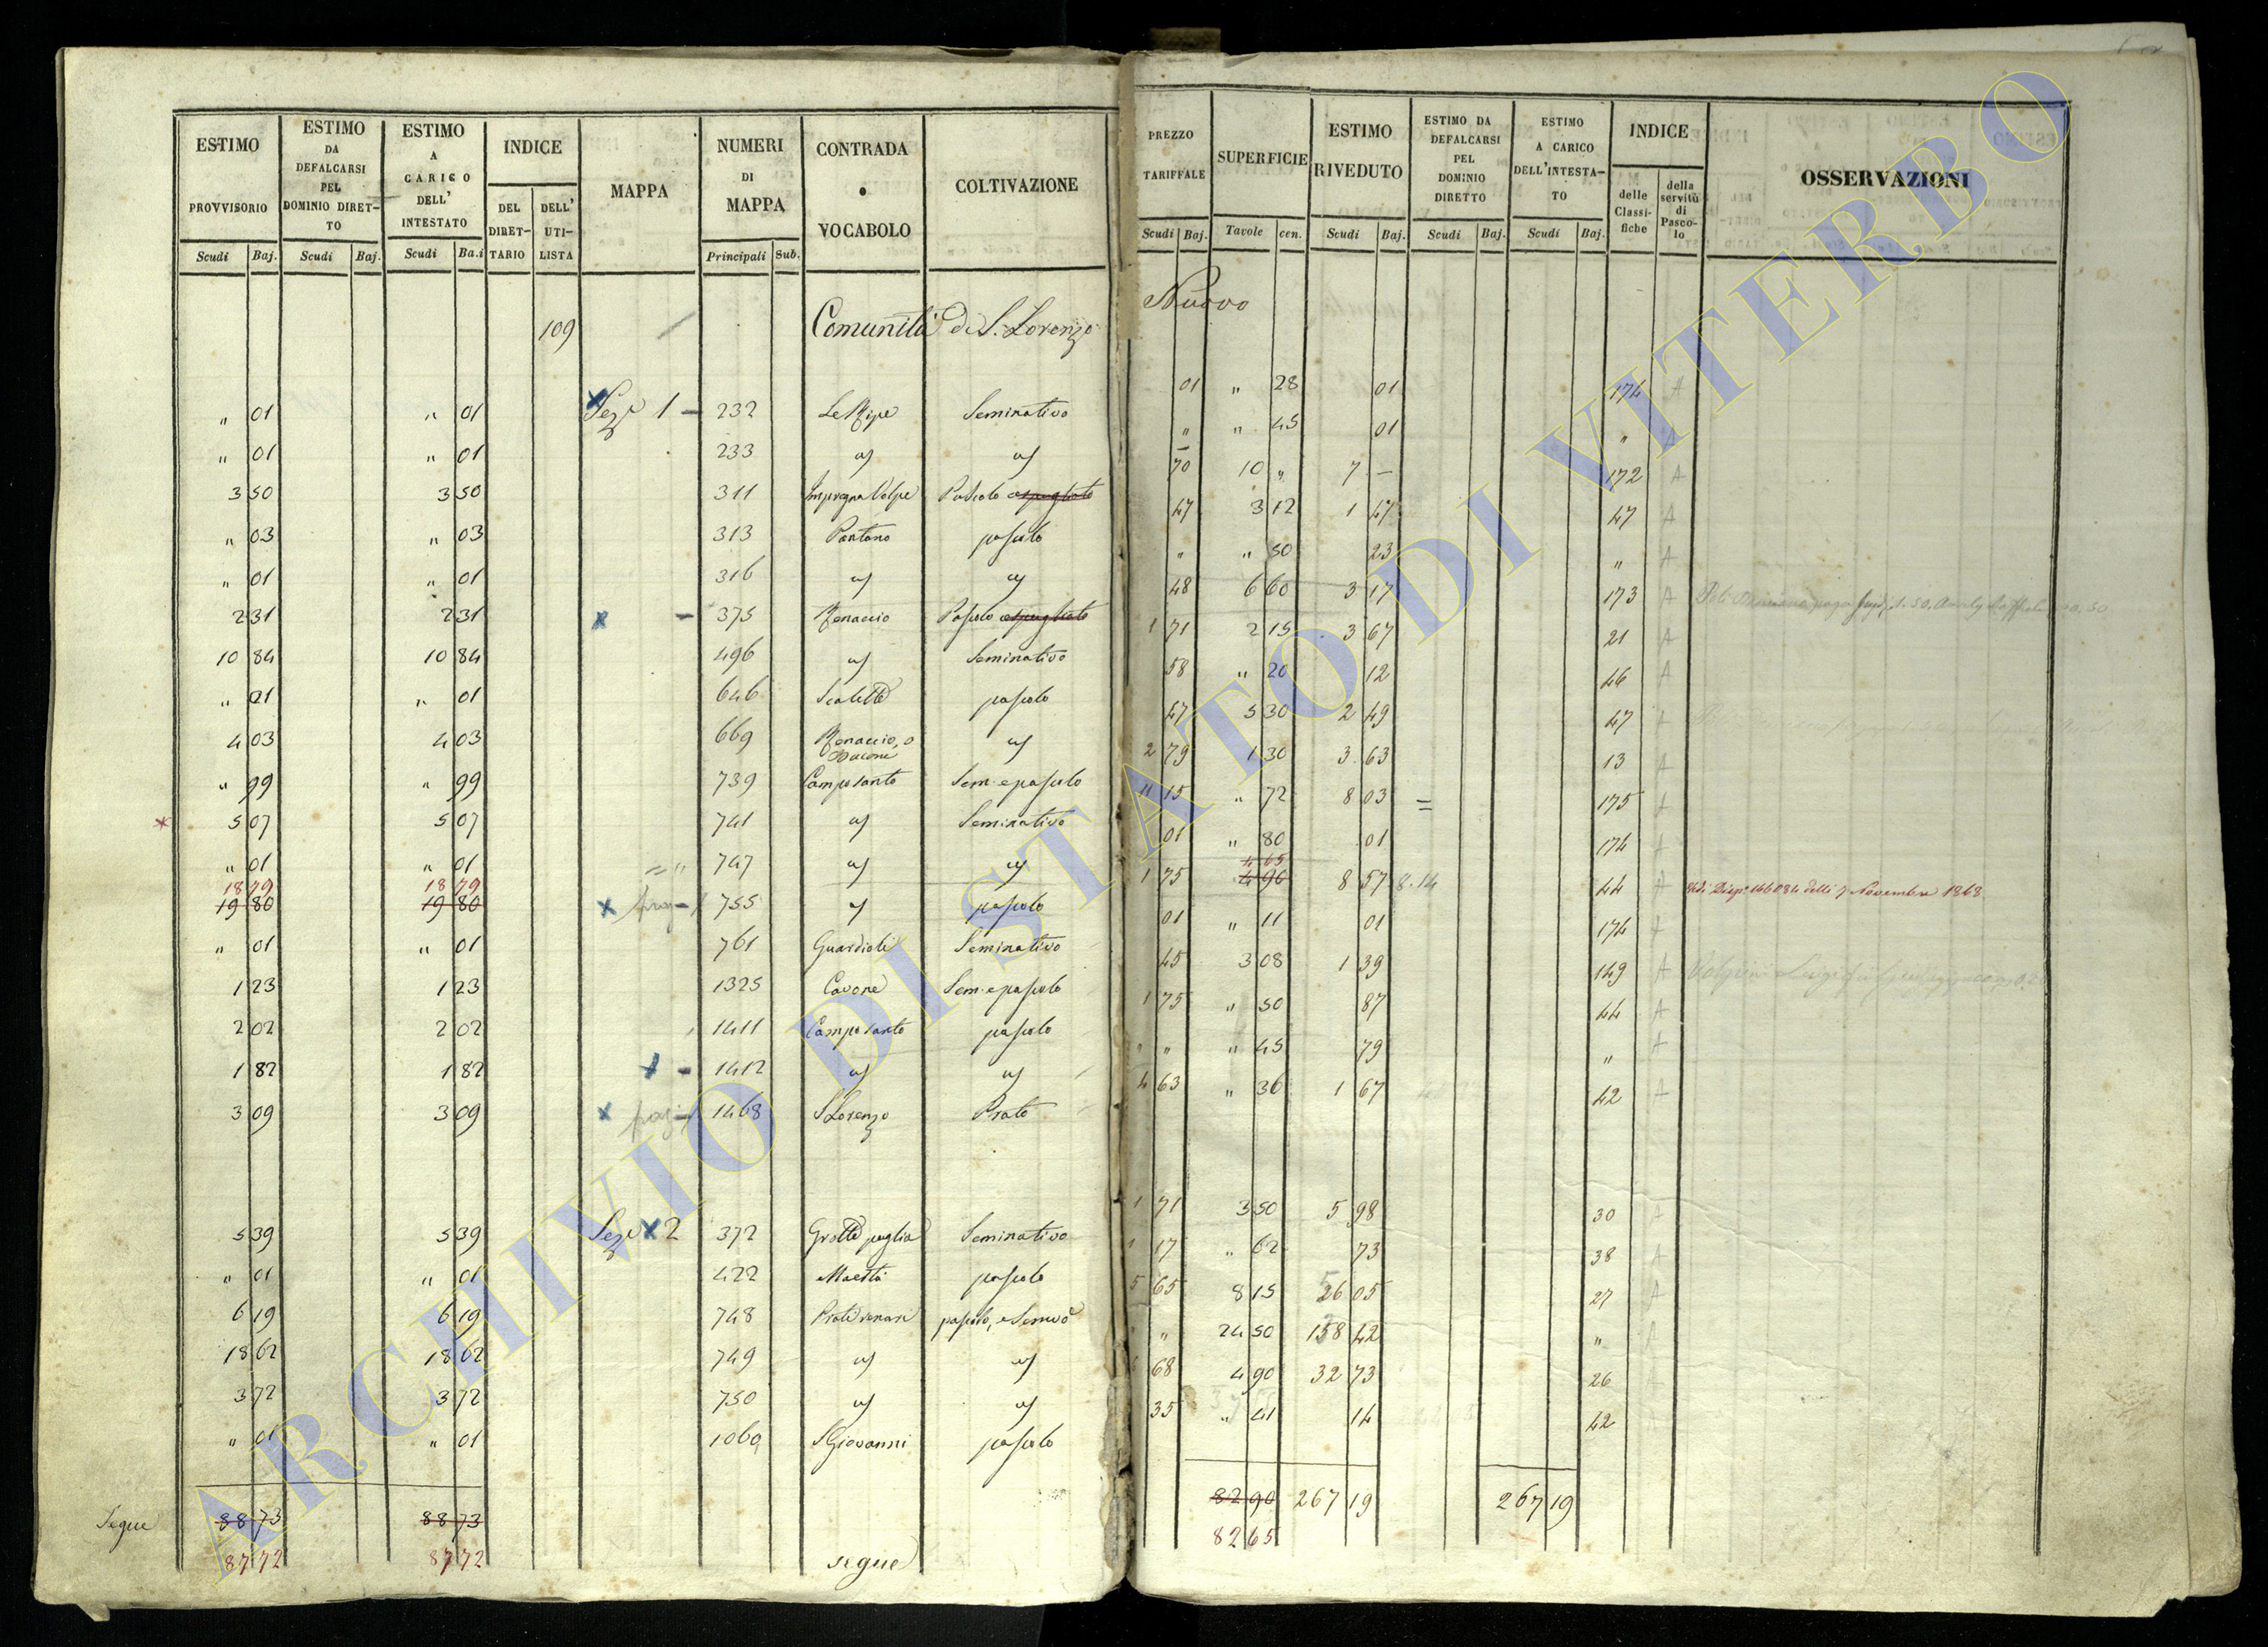 ESTIMO PROVVISORIO Scudi Baj.
ESTIMO DA DEFALCARSI PEL DOMINIO DIRETTO Scudi Baj.
ESTIMO A CARICO DELL' INTESTATO Scudi Ba.i
INDICE DEL DIRETTARIO DELL' UTILISTA
MAPPA
NUMERI DI MAPPA Principali Sub.
CONTRADA o VOCABOLO
COLTIVAZIONE
PREZZO TARIFFALE Scudi Baj.
SUPERFICIE Tavole cen.
ESTIMO RIVEDUTO Scudi Baj.
ESTIMO DA DEFALCARSI PEL DOMINIO DIRETTO Scudi Baj.
ESTIMO A CARICO DELL'INTESTATO Scudi Baj.
INDICE delle Classifiche della servitù di Pascolo
OSSERVAZIONI
109 Comunità di S. Lorenzo Nuovo
" 01 " 01 Sez.e 1 - 232 Le Ripe Seminativo 01 " 28 01 174 A
" 01 " 01 233 " " 45 01 " A
3 50 3 50 311 Impregna Volpe Pascolo 70 10 " 7 - 172 A
" 03 " 03 313 Pantano pascolo 47 3 12 1 47 47 A
" 01 " 01 316 " " 50 23 " A
2 31 2 31 x - 375 Renaccio Pascolo 48 6 60 3 17 173 A
10 84 10 84 496 Seminativo 1 71 2 15 3 67 21 A
" 01 " 01 646 Scalette pascolo 58 " 20 12 46 A
4 03 4 03 669 Renaccio, o 47 5 30 2 49 47
" 99 " 99 739 Camposanto Sem. e pascolo 2 79 1 30 3 63 13 A
5 07 5 07 741 Seminativo " 15 " 72 8 03 = 175
" 01 " 01 747 01 " 80 01 174
18 79 18 79 4 65
19 80 19 80 x 755 pascolo 1 75 4 90 8 57 8.14 44 A 7 Novembre 1868
" 01 " 01 761 Guardiole Seminativo 01 " 11 01 174
1 23 1 23 1325 Cavone Sem. e pascolo 45 3 08 1 39 149 A
2 02 2 02 1411 Camposanto pascolo 1 75 " 50 87 44 A
1 82 1 82 x - 1412 " " " 45 79 " A
3 09 3 09 x 1468 S Lorenzo Prato 4 63 " 36 1 67 42 A
5 39 5 39 Sez.e x 2 372 Grotte paglia Seminativo 1 71 3 50 5 98 30 A
" 01 " 01 422 Maestà pascolo 1 17 " 62 73 38 A
6 19 6 19 748 Prati pascolo, e Semivo 5 65 8 15 26 05 27 A
18 62 18 62 749 " 24 50 158 42 " A
3 72 3 72 750 68 4 90 32 73 26
" 01 " 01 1060 S Giovanni pascolo 35 " 41 14 42
Segue 88 73 88 73 82 90 267 19 267 19
87 72 87 72 segue 82 65
ARCHIVIO DI STATO DI VITERBO